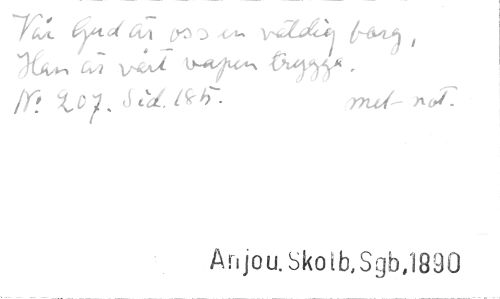 Vår Gud är oss en väldig borg,
Han är vårt vapen trygga.
No. 207. Sid. 185. met not.
Anjou. Skolb, Sgb, 1890